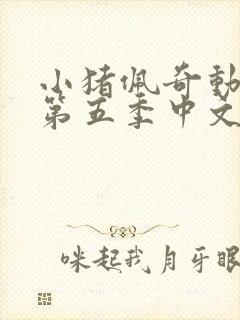 小猪佩奇動
第五季中文
咪起我月牙眼